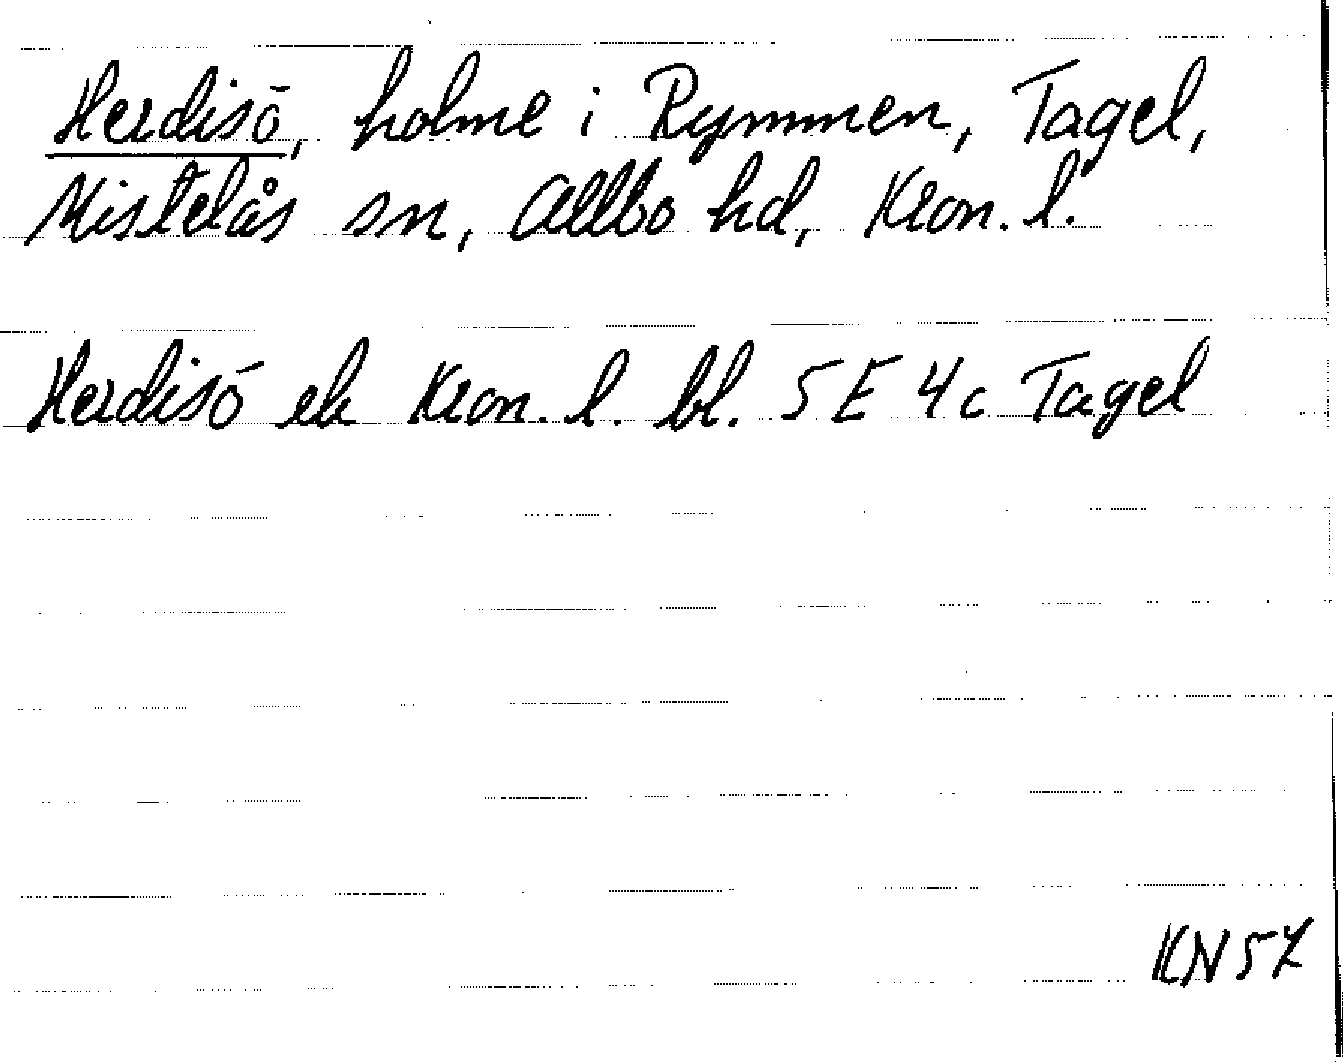 Herdisö, holme i Rymmen, Tagel,
Mistelås sn, Allbo hd, Kron. l.
Herdisö ek Kron. l. bl. 5 E 4c Tagel
KN57